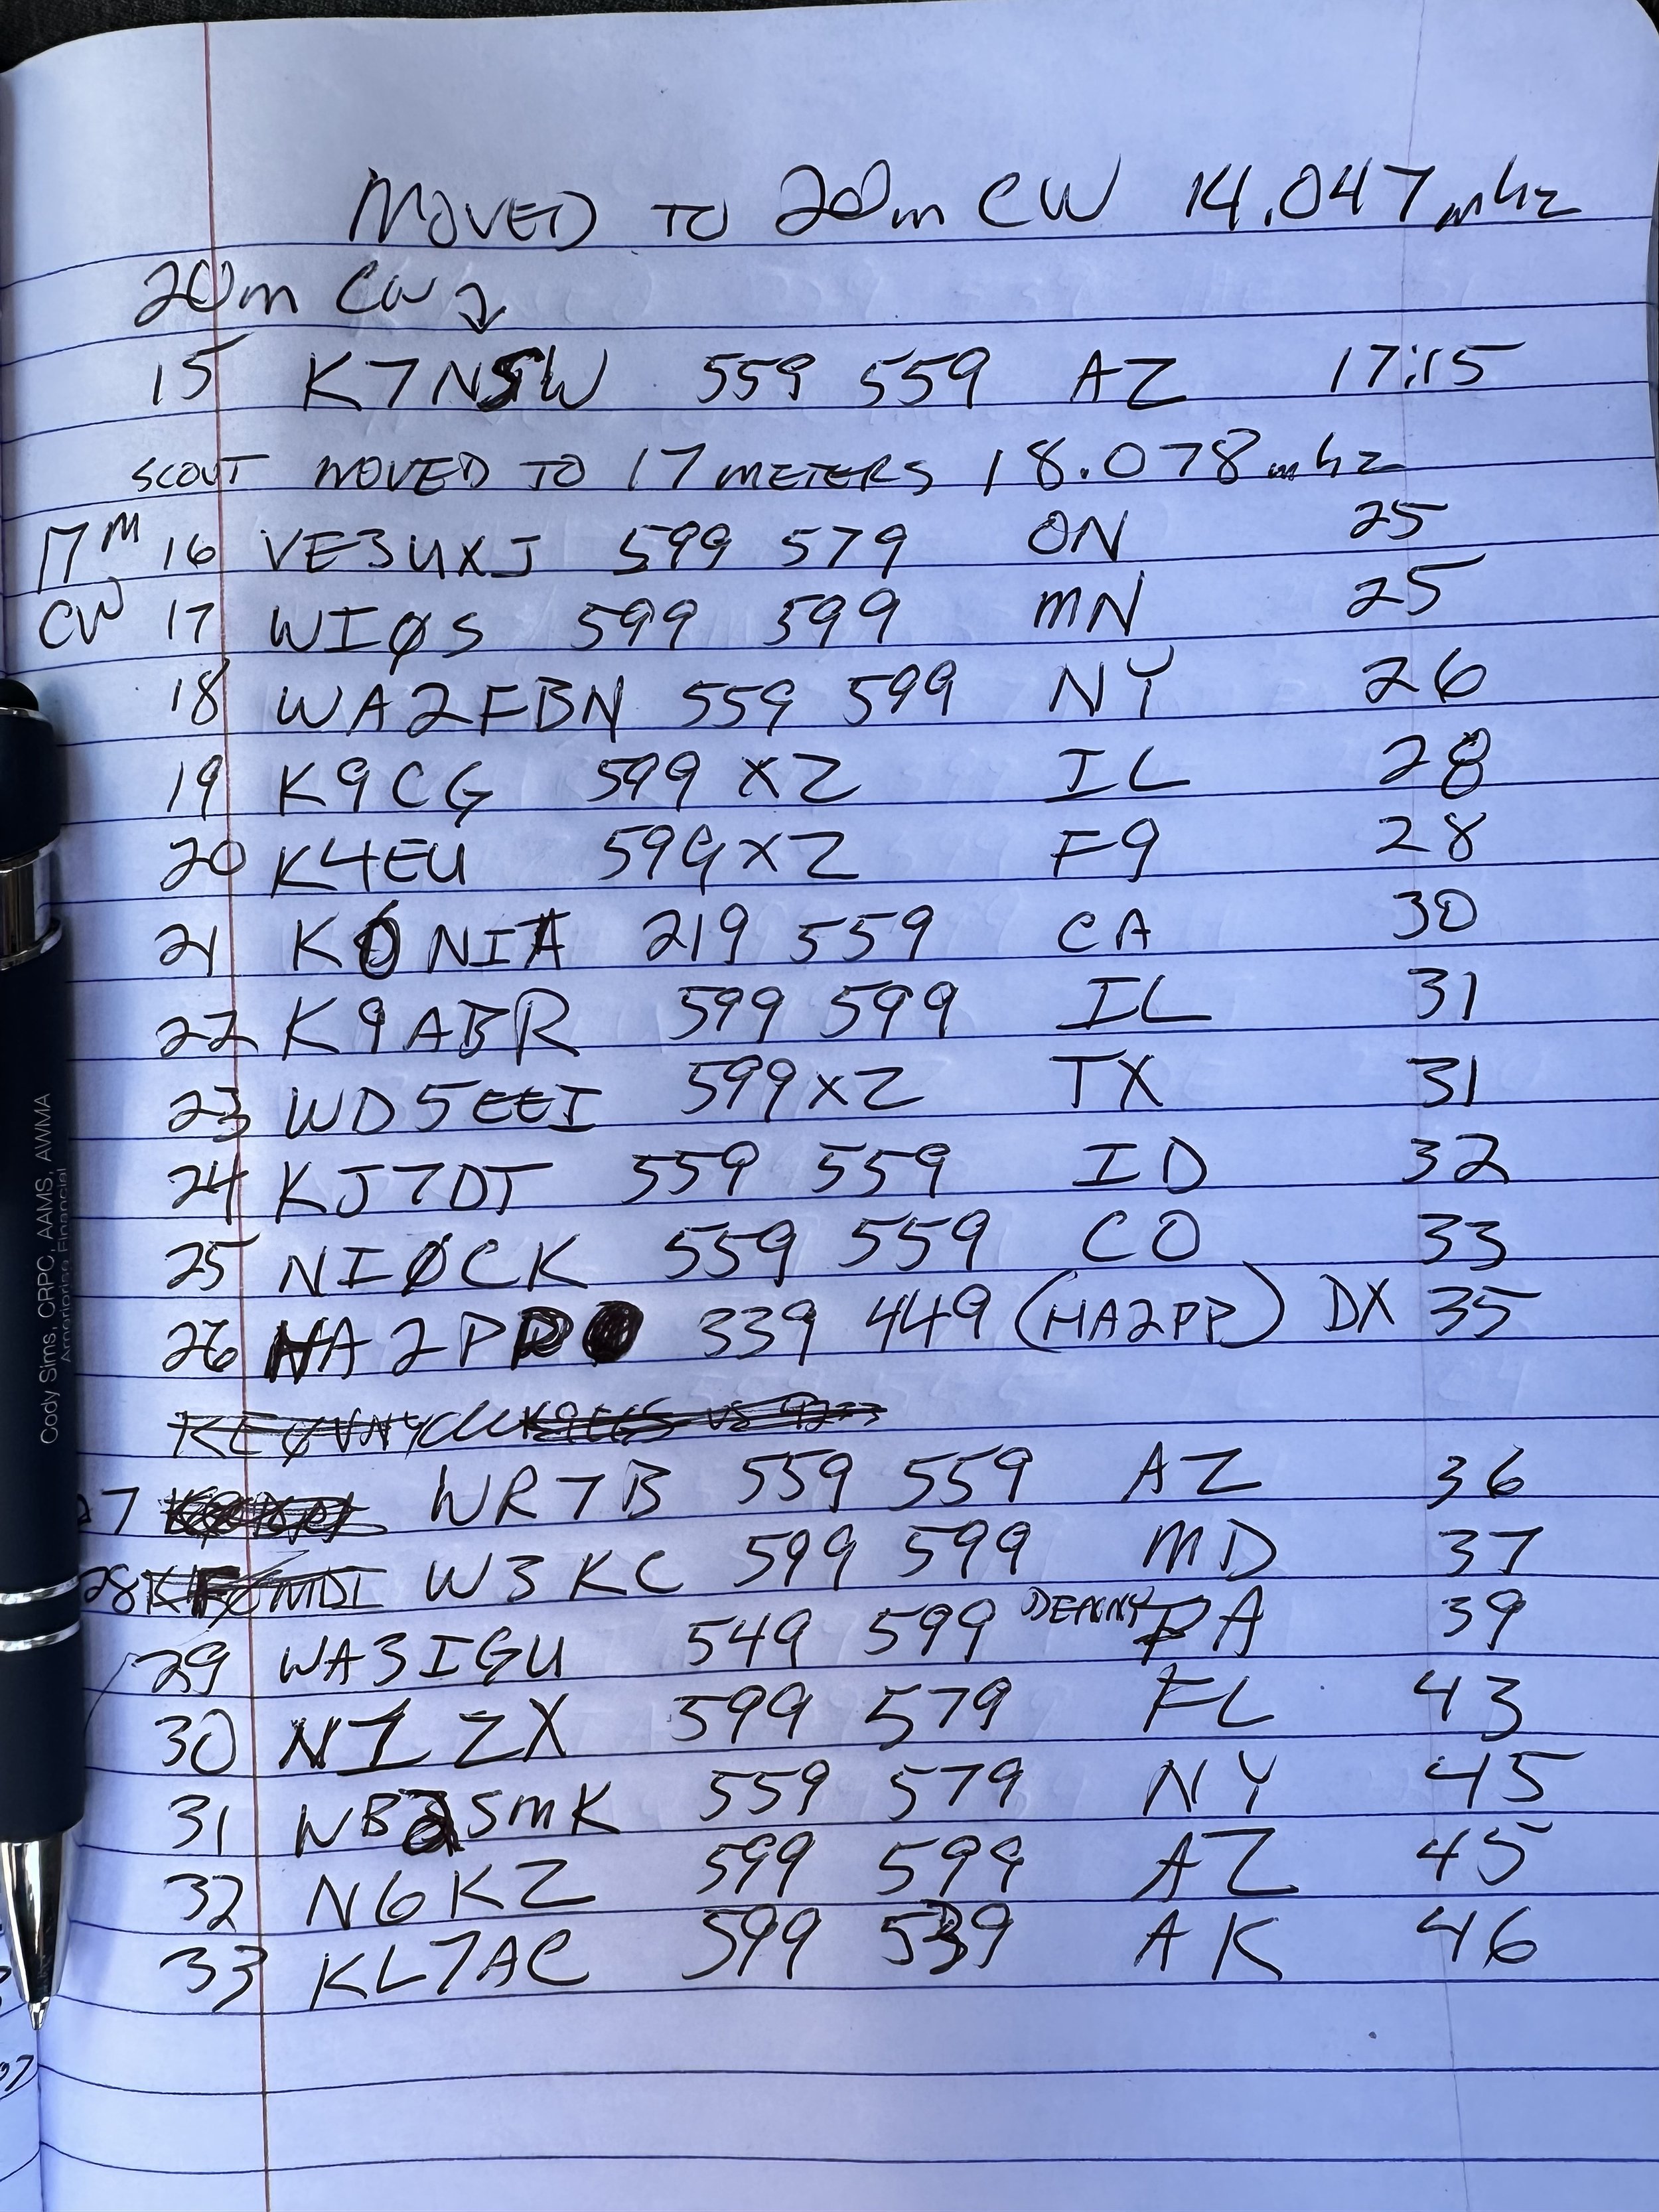 MOVED TO 20m CW 14.047 mhz
20m CW
15 K7NSW 559 559 AZ 17:15
SCOUT MOVED TO 17 METERS 18.078 mhz
17M 16 VE3UXJ 599 579 ON 25
CW 17 WIØS 599 599 MN 25
18 WA2FBN 559 599 NY 26
19 K9CG 599 X2 IL 28
20 K4EU 599 X2 28
21 NIA 219 559 CA 30
22 K9ABR 599 599 IL 31
23 WD5EEI 599 X2 TX 31
24 KJ7DT 559 559 ID 32
25 NIØCK 559 559 CO 33
26 HA2PP 339 449 (HA2PP) DX 35
27 WR7B 559 559 AZ 36
28 W3KC 599 599 MD 37
29 WA3IGU 549 599 DENNY PA 39
30 N1ZX 599 579 FL 43
31 WB2SMK 559 579 NY 45
32 N6KZ 599 599 AZ 45
33 KL7AC 599 539 AK 46
Cody Sims, CRPC, AAMS, AWMA
Ameriprise Financial
07